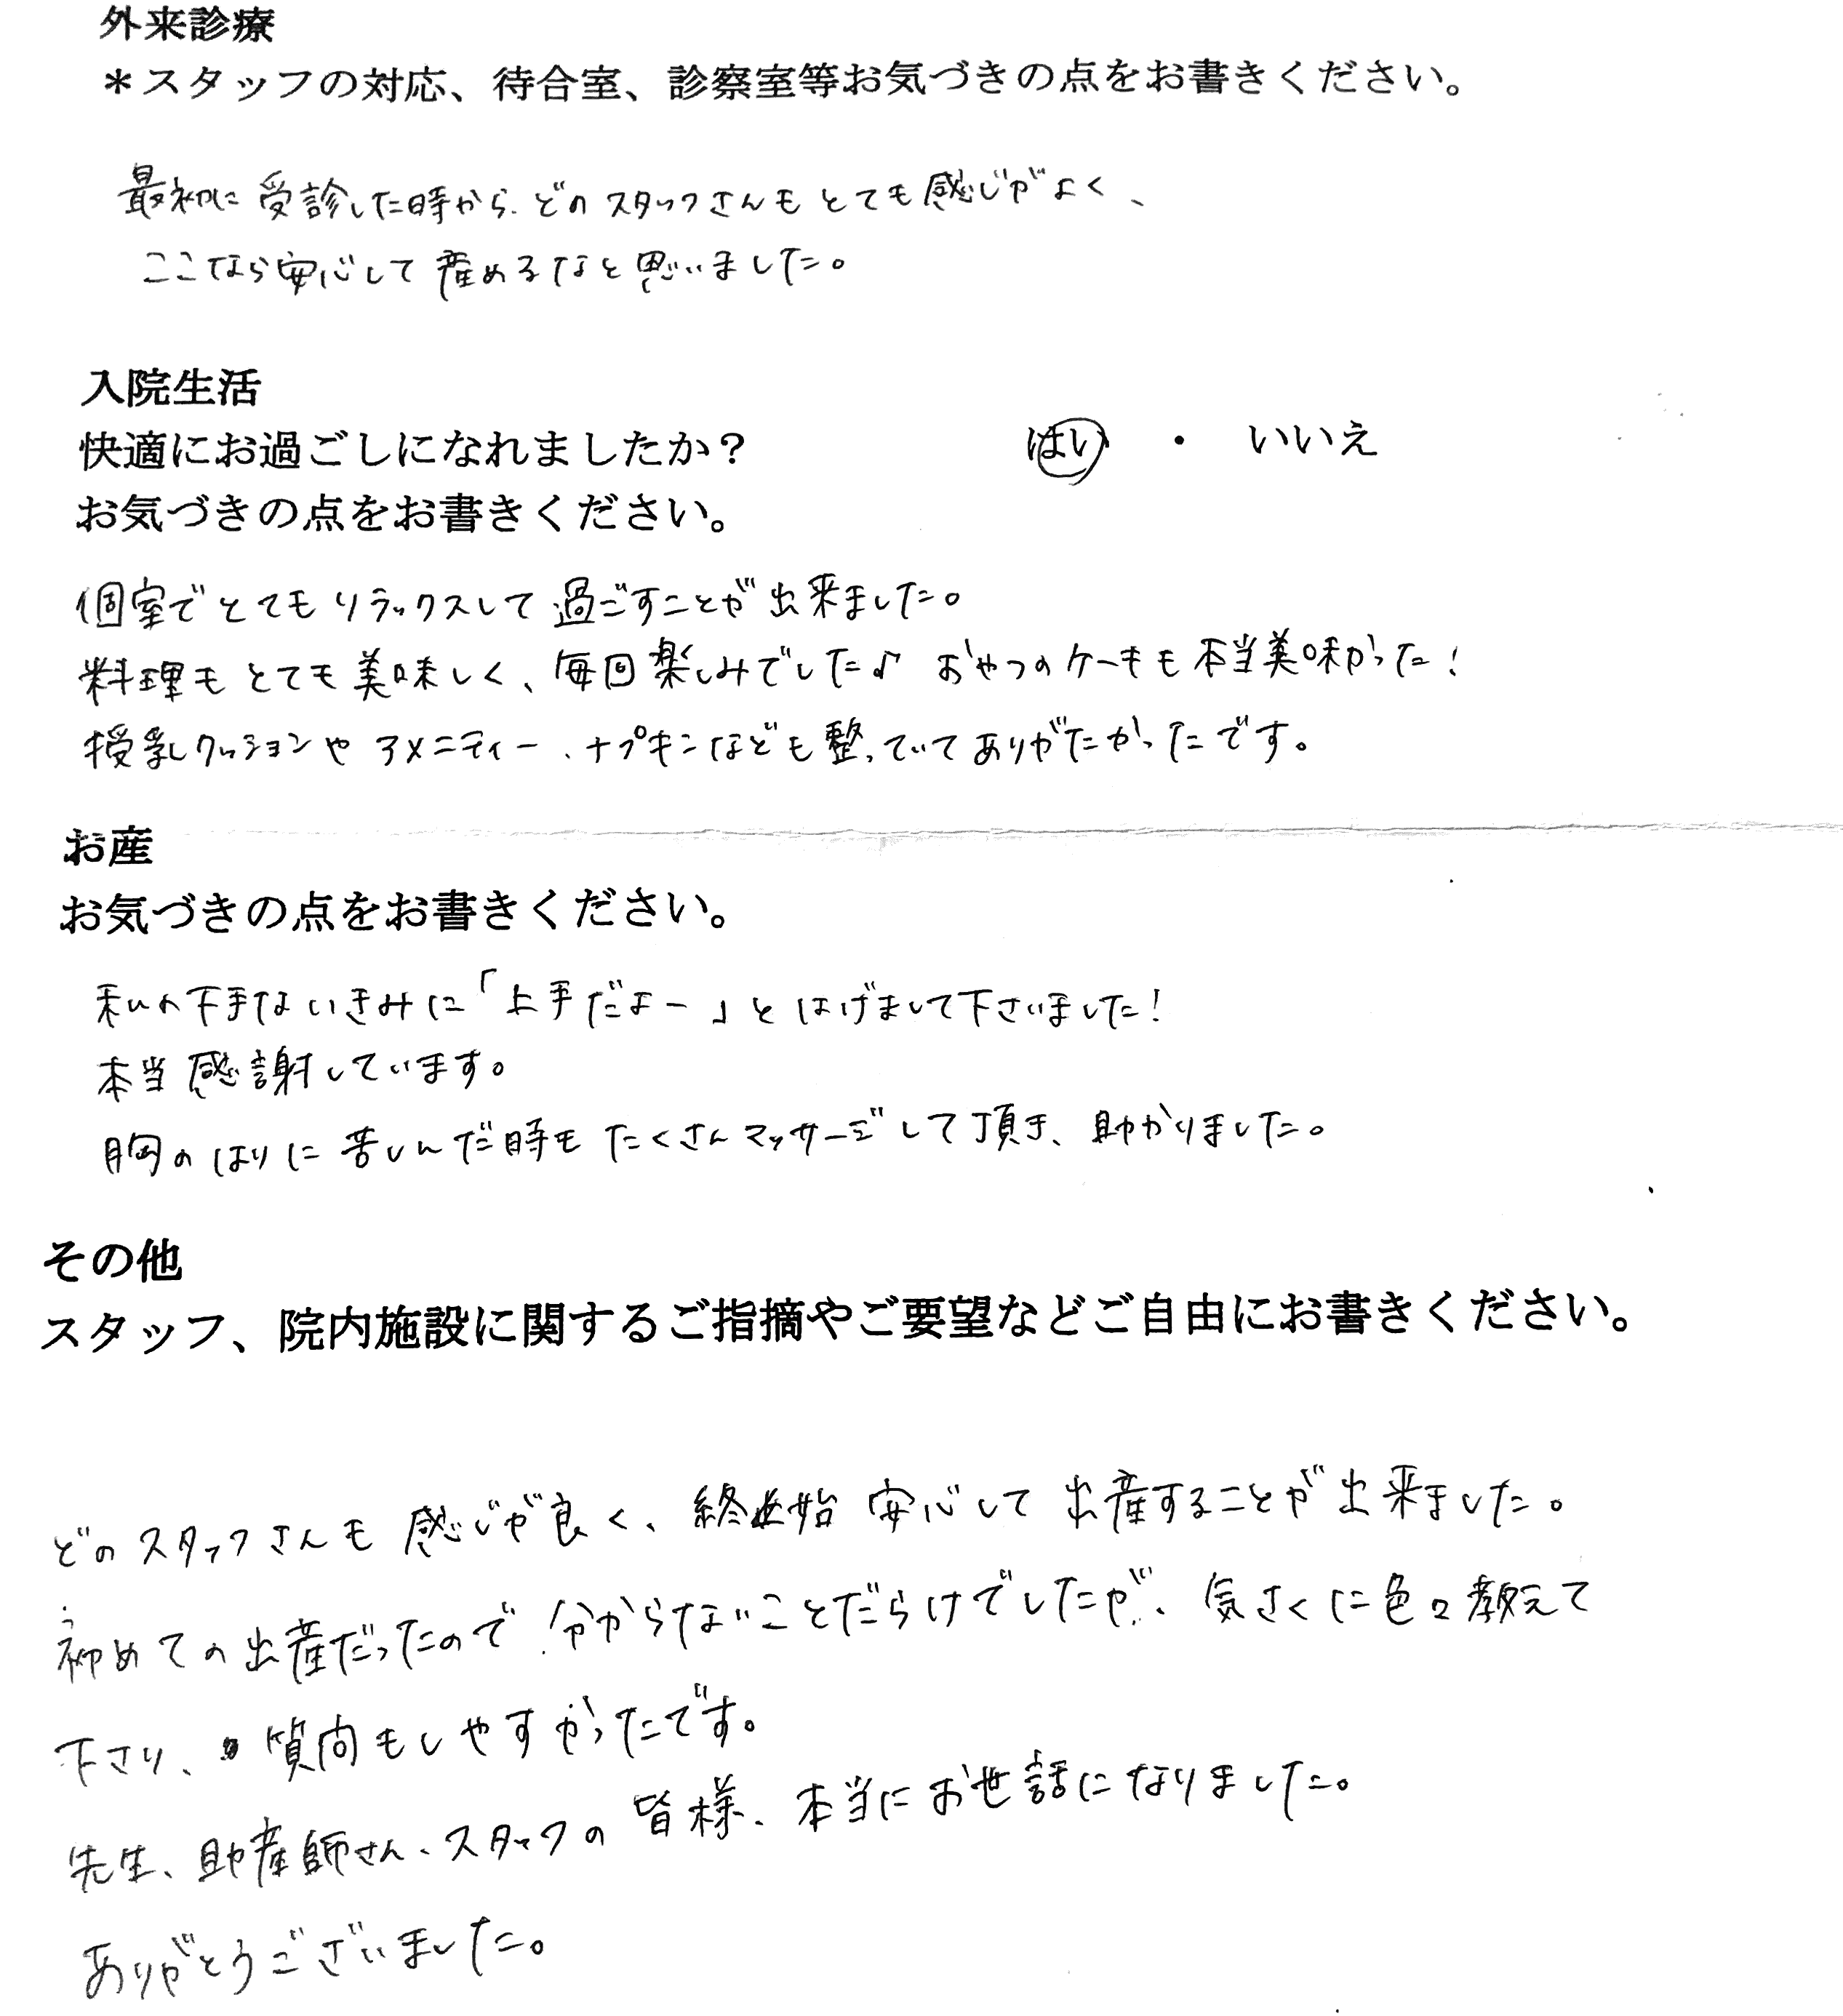 外来診療
＊スタッフの対応、待合室、診察室等お気づきの点をお書きください。
最初に受診した時から、どのスタッフさんもとても感じがよく、
ここなら安心して産めるなと思いました。
入院生活
快適にお過ごしになれましたか？ はい ・ いいえ
お気づきの点をお書きください。
個室でとてもリラックスして過ごすことが出来ました。
料理もとても美味しく、毎回楽しみでした♪ おやつのケーキも本当美味かった！
授乳クッションやアメニティー、ナプキンなども整っていてありがたかったです。
お産
お気づきの点をお書きください。
私の下手ないきみに「上手だよー」とはげまして下さいました！
本当感謝しています。
胸のはりに苦しんだ時もたくさんマッサージして頂き、助かりました。
その他
スタッフ、院内施設に関するご指摘やご要望などご自由にお書きください。
どのスタッフさんも感じが良く、終始安心して出産することが出来ました。
初めての出産だったので分からないことだらけでしたが、気さくに色々教えて
下さり、質問もしやすかったです。
先生、助産師さん、スタッフの皆様、本当にお世話になりました。
ありがとうございました。